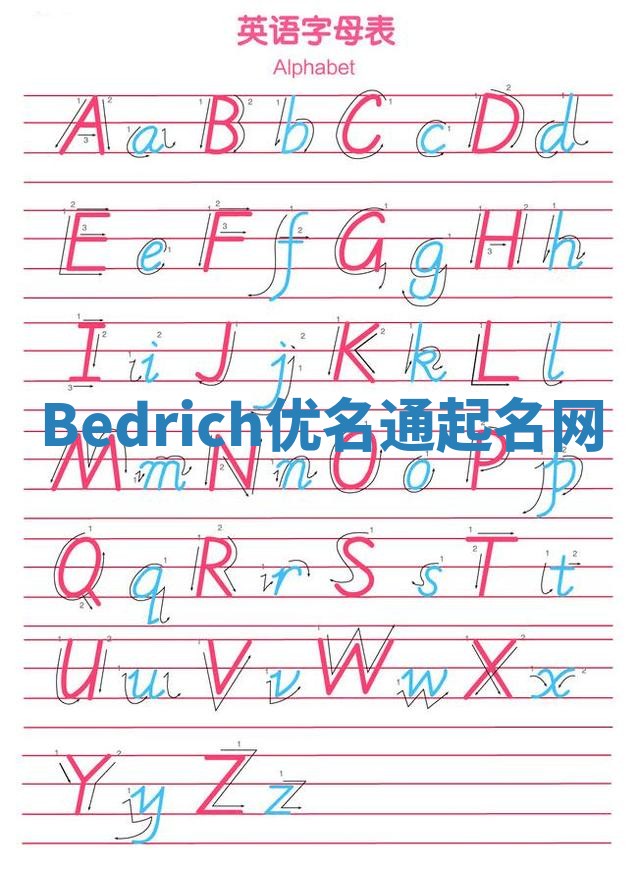 英语字母表
Alphabet
A a B b C c D d
E e F f G g H h
I i J j K k L l
Bedrich优名通起名网
M m N n O o P p
Q q R r S s T t
U u V v W w X x
Y y Z z